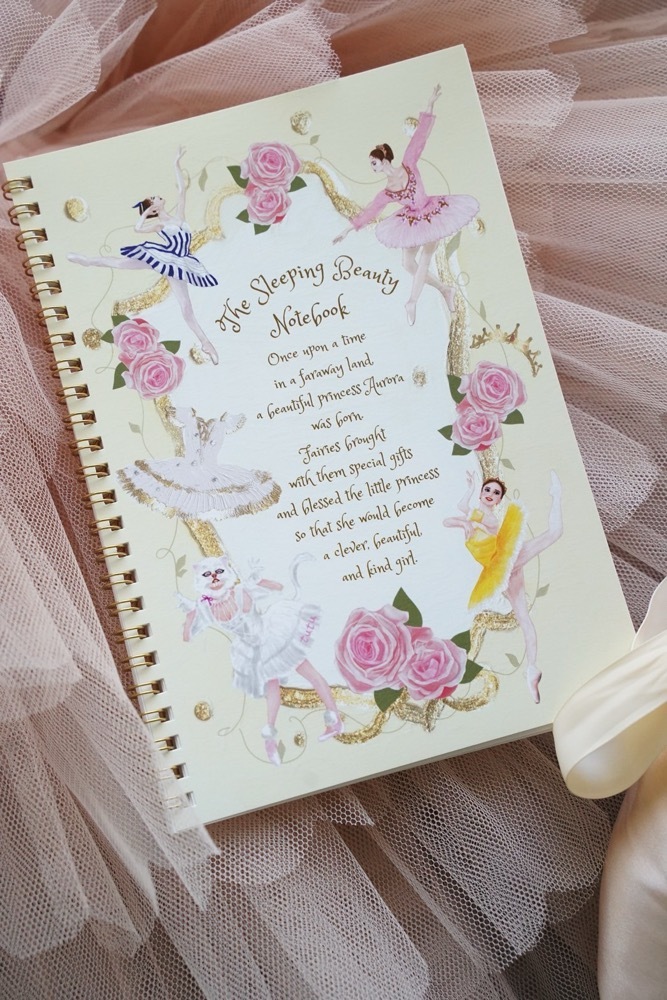 The Sleeping Beauty
Notebook
Once upon a time
in a faraway land,
a beautiful princess Aurora
was born.
Fairies brought
with them special gifts
and blessed the little princess
so that she would become
a clever, beautiful,
and kind girl.